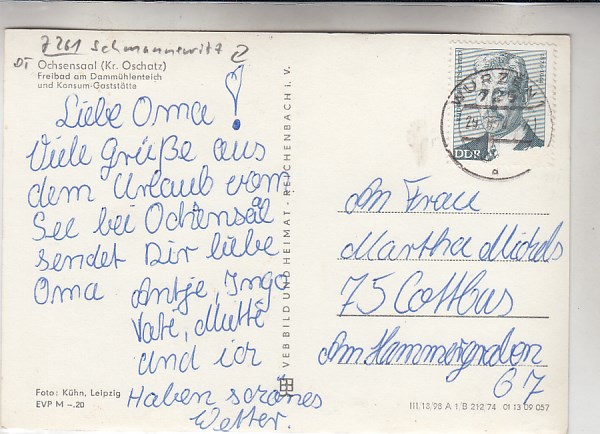 7261 Schmannewitz
DT Ochsensaal (Kr. Oschatz)
Freibad am Dammühlenteich
und Konsum-Gaststätte
Liebe Oma!
Viele Grüße aus
dem Urlaub vom
See bei Ochensaal
sendet Dir liebe
Oma Antje, Ingo
Vati, Mutti
und ich
Haben schönes
Wetter.
Foto: Kühn, Leipzig
EVP M –.20
VEB BILD UND HEIMAT · REICHENBACH i. V.
WURZEN
DDR
An Frau
Martha Mickels
75 Cottbus
Am Hammergraben
67
III/18/98 A 1 B 212/74 01 13 09 057